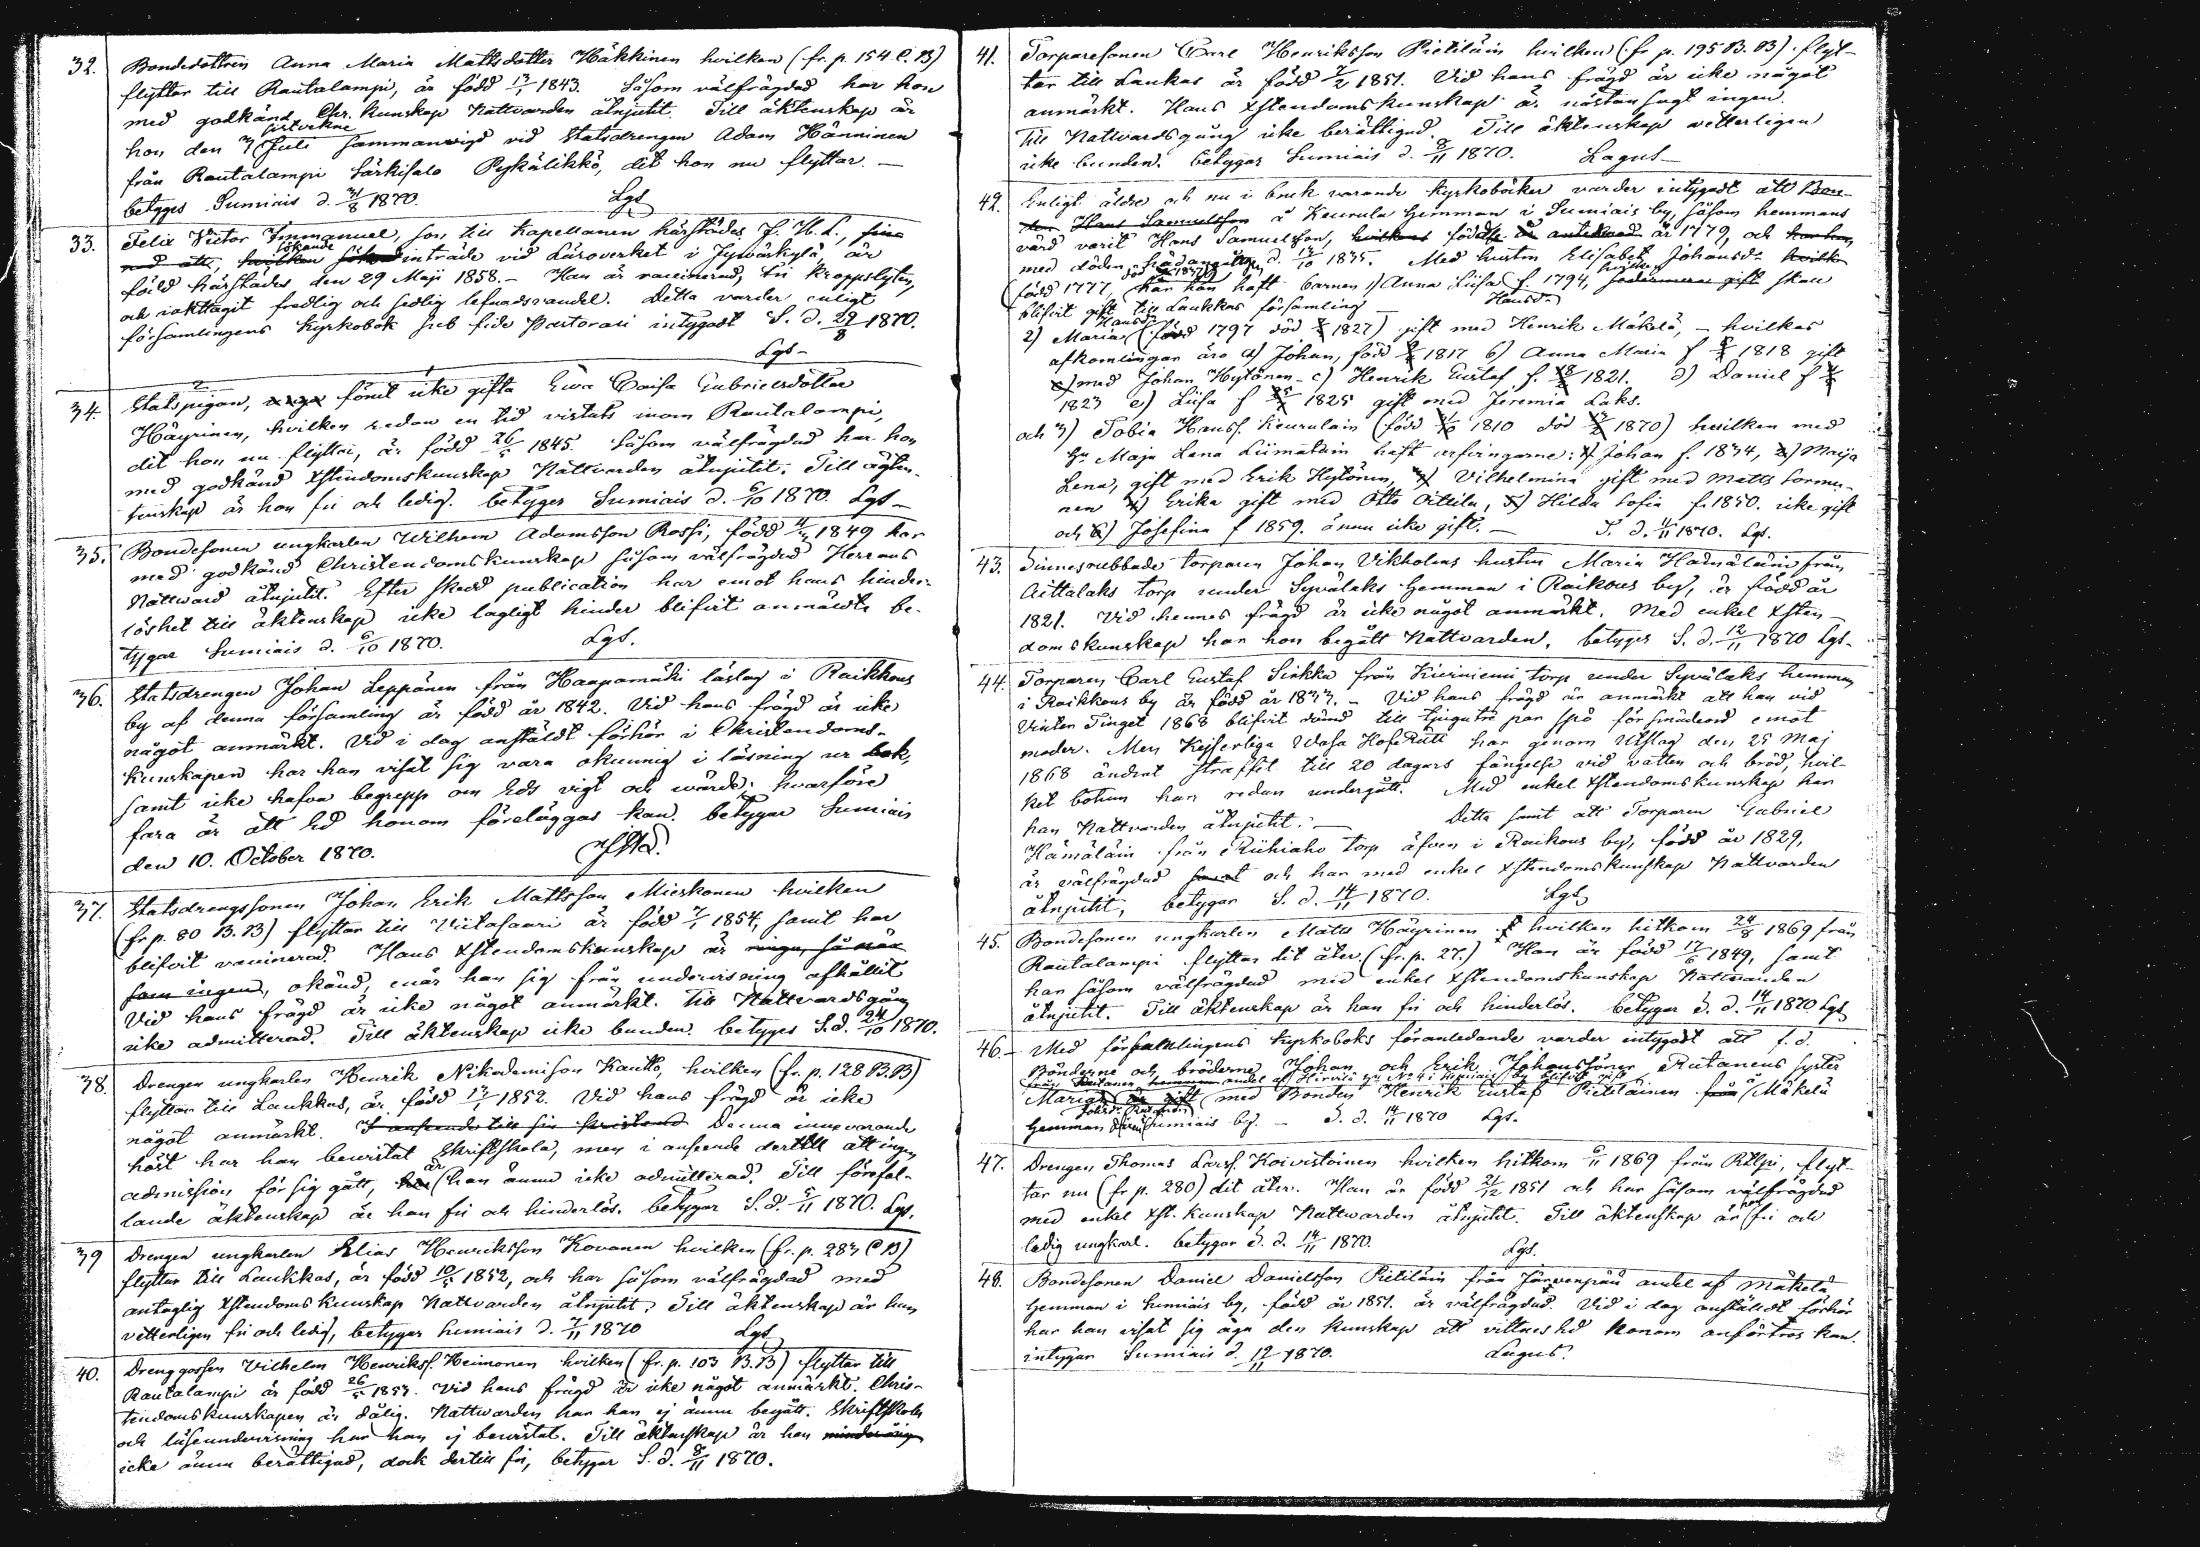 32. Bondedottren Anna Maria Mattsdotter Häkkinen hvilken (fr. p. 154 C. B)
flyttar till Rautalampi, är född 13/1 1843. Såsom välfrägdad har hon
med godkänd Chr. kunskap Nattvarden åtnjutit. Till äktenskap är
hon den 3 sistvekne Juli sammanvigd vid Statsdrengen Adam Hänninen
från Rautalampi Särkisalo Pykälikkö, dit hon nu flyttar. —
betyges Sumiais d. 31/8 1870. Lgs
33. Felix Victor Immanuel, son till Kapellanen härstädes J. H. L.,
sökande inträde vid Läroverket i Jyväskylä, är
född härstädes den 29 Maji 1858. – Han är vaccinerad, fri kroppslyten,
och iakttagit fredlig och sedlig lefnadsvandel. Detta varder enligt
församlingens Kyrkobok sub fide Pastorari intygadt S. d. 29/8 1870.
Lgs –
34. Statspigan, förut icke gifta Ewa Caisa Gabrielsdotter
Häyrinen, hvilken redan en tid vistats inom Rautalampi,
dit hon nu flyttar, är född 26/5 1845. Såsom välfrägdad har hon
med godkänd Xstendomskunskap Nattvarden åtnjutit. Till äkten-
tenskap är hon fri och ledig. betyger Sumiais d. 6/10 1870. Lgs –
35. Bondesonen ungkarlen Wilhom Adamsson Rossi, född 1849 har
med godkänd Christendomskunskap såsom välfrägdad Herrans
Nattward åtnjutit. Efter skedd publication har emot hans hinder-
löshet till äktenskap icke lagligt hinder blifvit anmäldt be-
tygar Sumiais d. 6/10 1870. Lgs.
36. Statsdrengen Johan Leppänen från Haapamäki läslag i Raikkous
by af denna församling är född år 1842. Vid hans frägd är icke
något anmärkt. Vid i dag anstäldt förhör i Christendoms-
kunskapen har han visat sig vara okunnig i läsning ur bok,
samt icke hafva begrepp om Eds vigt och wärde; hvarföre
fara är att Ed honom föreläggas kan. betygar Sumiais
den 10. October 1870.
37. Statsdrengssonen Johan Erik Mattsson Mieskonen hvilken
(fr p. 80 B. B) flyttar till Viitasaari är född 7/1 1854, samt har
blifvit vaccinerad. Hans Xstendomskunskap är ringa, så när
som ingen, okänd, enär han sig från undervisning afhållit
Vid hans frägd är icke något anmärkt. Till Nattvardsgång
icke admitterad. Till äktenskap icke bunden. betyges S. d. 24/10 1870.
38. Drengen ungkarlen Henrik Nikodemison Kautto, hvilken (fr. p. 128 B. B)
flyttar till Laukkas, är född 13/1 1852. Vid hans frägd är icke
något anmärkt. Denna innevarande
höst har han bevistat Skriftskola, men i anseende dertill att ingen
admission för sig gått, är han ännu icke admitterad. Till förefal-
lande äktenskap är han fri och hinderlös. betygar S. d. 5/11 1870. Lgs.
39 Drengen ungkarlen Elias Henriksson Kovanen hvilken (fr. p. 283 C B)
flyttar till Laukkas, är född 10/5 1852, och har såsom välfrägdad med
antaglig Xstendomskunskap Nattvarden åtnjutit. Till äktenskap är han
vetterligen fri och ledig, betygar Sumiais d. 7/11 1870 Lgs
40. Drenggossen Vilhelm Henrikss. Heimonen hvilken (fr. p. 103 B. B) flyttar till
Rautalampi är född 26/5 1853. Vid hans frägd är icke något anmärkt. Chris-
tendomskunskapen är dålig. Nattwarden har han ej ännu begått. Skriftskola
och läseundervisning har han ej bevistat. Till äktenskap är han minderårig
icke ännu berättigad, dock dertill fri, betygar S. d. 8/11 1870.
41. Torparesonen Carl Henriksson Pietiläin hvilken (fr p. 195 B. B) flyt-
tar till Laukas är född 7/2 1851. Vid hans frägd är icke något
anmärkt. Hans Xstendomskunskap är nästan sagt ingen.
Till Nattvardsgång icke berättigad. Till äktenskap vetterligen
icke bunden. betygar Sumiais d. 8/11 1870. Lagus –
42. Enligt äldre och nu i bruk varande kyrkoböcker varder intygadt att Bon-
den Hans Samuelsson å Keurula Hemman i Sumiais by, såsom hemmans
värd varit Hans Samuelsson, född är antecknad år 1779, och har han
med döden hädangått d. 17/10 1835. Med hustru Elisabet Johansd.
(född 1777, har han haft barnen 1) Anna Liisa f. 1794, hvilken skall
blifvit gift till Laukkas församling
2) Maria Hansd. (född 1797 död 1827) gift med Henrik Mäkelä, – hvilkas
afkomlingar äro a) Johan, född 1817 b) Anna Maria f 1818 gift
med Johan Hytönen – c) Henrik Gustaf f. 1821. d) Daniel f
1823 e) Liisa f 1825 gift med Jeremia Laks.
och 3) Tobia Hanss. Keurulain (född 1810 död 1870) hvilken med
Hu Maja Lena Liimatain haft arfvingarne: 1) Johan f. 1834, 2) Maija
Lena, gift med Erik Hytönen, 3) Vilhelmina gift med Matts Sormu-
nen 4) Erika gift med Otto Aittila, 5) Hilda Sofia f. 1850. icke gift
och 6) Josefina f 1859. ännu icke gift. – S. d. 11/11 1870. Lgs.
43. Sinnesrubbade torparen Johan Vikholms hustru Maria Hämäläin från
Aittalaks torp under Syvälaks Hemman i Raikous by, är född år
1821. Vid hennes frägd är icke något anmärkt. Med enkel Xsten-
domskunskap har hon begått Nattvarden, betyges S. d. 12/11 1870 Lgs –
44. Torparen Carl Gustaf Sirkka från Kierniemi torp under Syvälaks hemman
i Raikkous by är född år 1833. – Vid hans frägd är anmärkt att han vid
Vinter Tinget 1868 blifvit dömd till tjugutre par spö för smädeord emot
moder. Men Kejserliga Wasa HofRätt har genom Utslag den 25 Maj
1868 ändrat straffet till 20 dagars fängelse vid vatten och bröd, hvil-
ket bötum han redan undergått. Med enkel Xstendomskunskap har
han Nattvarden åtnjutit. – Detta samt att Torparen Gabriel
Hämäläin från Riihiaho torp äfven i Raikous by, född år 1829,
är välfrägdad och har med enkel Xstendomskunskap Nattvarden
åtnjutit, betygar S. d. 14/11 1870. Lgs
45. Bondesonen ungkarlen Matts Häyrinen hvilken hitkom 24/8 1869 från
Rautalampi flyttar dit åter (fr. p. 27.) Han är född 17/6 1849, samt
har såsom välfrägdad med enkel Xstendomskunskap Nattvarden
åtnjutit. Till äktenskap är han fri och hinderlös. betygar S. d. 14/11 1870 Lgs
46. – Med församlingens kyrkoboks föranledande varder intygadt att f. d.
Bönderne och bröderne Johan och Erik Johanssöner Rutanens syster
Maria med Bonden Henrik Gustaf Pietiläinen från Mäkelä
Hemman Sumiais by. – S. d. 14/11 1870 Lgs.
47. Drengen Thomas Larss. Koivistoinen hvilken hitkom 6/11 1869 från Rtlpi, flyt-
tar nu (fr p. 280) dit åter. Han är född 21/12 1851 och har såsom välfrägdad
med enkel Xst. kunskap Nattwarden åtnjutit. Till äktenskap är han fri och
ledig ungkarl. betygar S. d. 14/11 1870. Lgs.
48. Bondesonen Daniel Danielsson Pietiläin från Järvenpää andel af Mäkelä
Hemman i Sumiais by, född år 1851. är välfrägdad. Vid i dag anstäldt förhör
har han visat sig äga den kunskap att vittnes Ed honom anförtros kan.
intygar Sumiais d. 19/11 1870. Lagus.